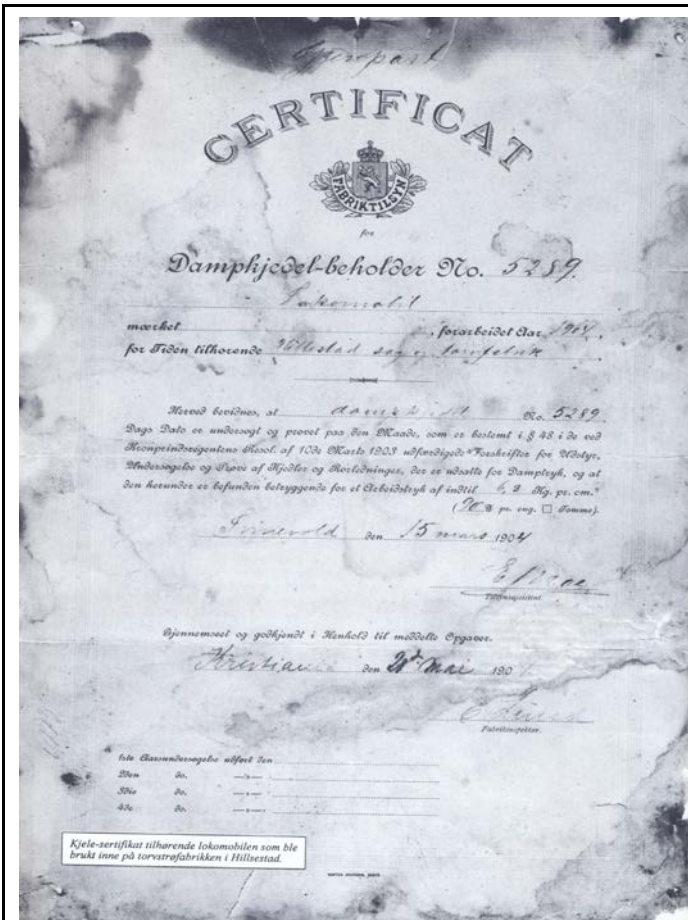 Gjenpart
CERTIFICAT
FABRIKTILSYN
for
Dampkjedel-beholder No. 5289.
Lokomobil
mærket , forarbeidet Aar 1904
for Tiden tilhørende Hillestad sag og
Herved bevidnes, at No. 5289
Dags Dato er undersøgt og prøvet paa den Maade, som er bestemt i § 48 i de ved
Kronprindsregentens Resol. af 10de Marts 1903 udfærdigede "Forskrifter for Udstyr,
Undersøgelse og Prøve af Kjedler og Rørledninger, der er udsatte for Damptryk, og at
den herunder er befunden betryggende for et Arbeidstryk af indtil 6,2 Kg. pr. cm.²
(90 ℔ pr. eng. □ Tomme).
den 15 mars 1904
Tilsynsassistent.
Gjennemseet og godkjendt i Henhold til meddelte Opgaver.
Kristiania den Mai 190
Fabrikinspektør.
1ste Aarsundersøgelse utført den
2den do. —„—
3die do. —„—
4de do. —„—
Kjele-sertifikat tilhørende lokomobilen som ble
brukt inne på torvstrøfabrikken i Hillsestad.